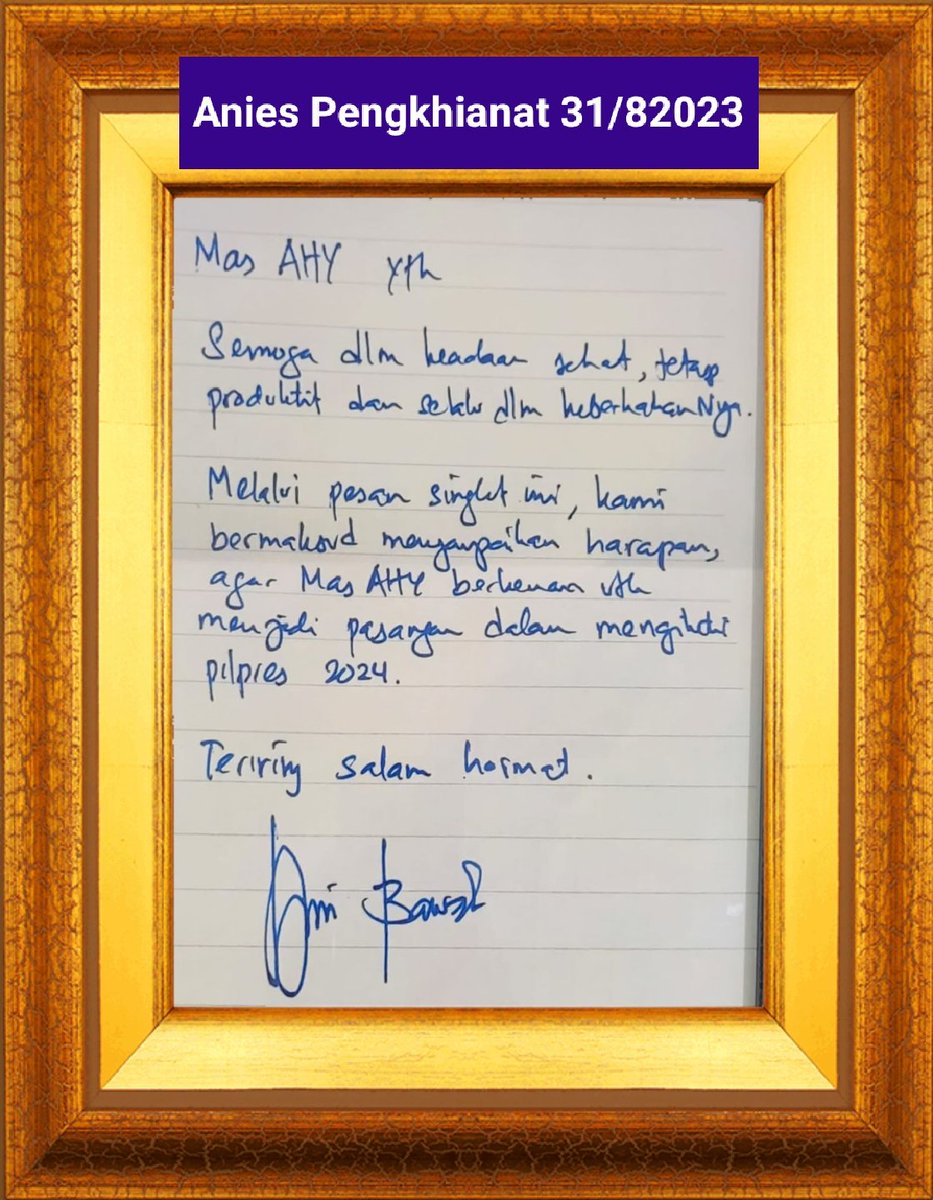 Anies Pengkhianat 31/82023
Mas AHY Yth
Semoga dlm keadaan sehat, tetap
produktif dan selalu dlm keberkahanNya.
Melalui pesan singkat ini, kami
bermaksud menyampaikan harapan,
agar Mas AHY berkenan utk
menjadi pasangan dalam mengikuti
pilpres 2024.
Teriring salam hormat.